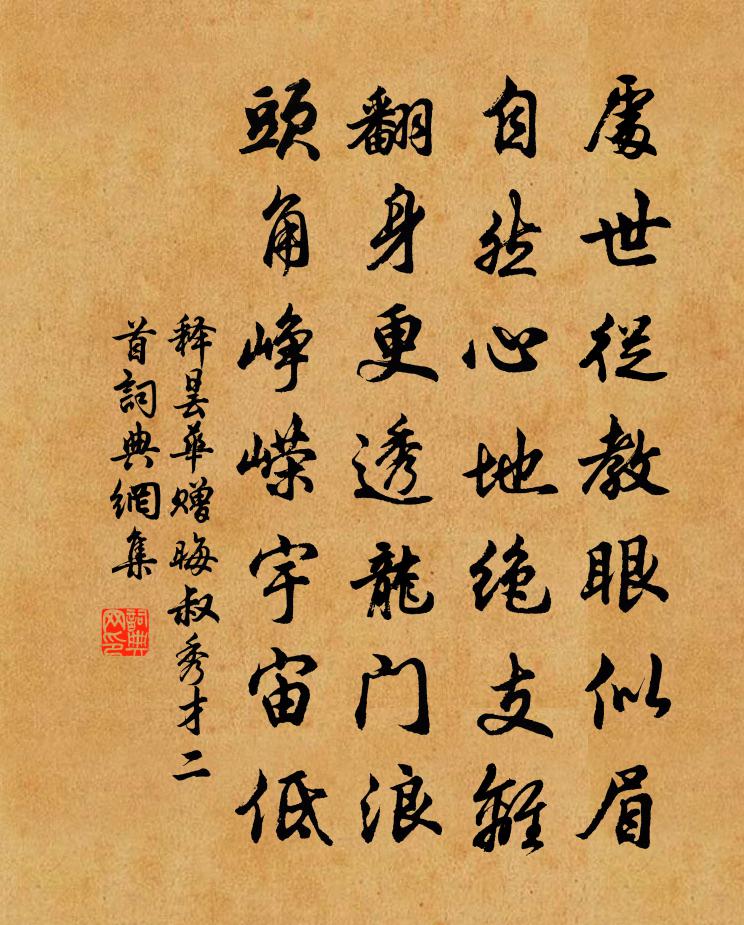 處世從教眼似眉
自然心地絶支離
翻身更透龍门浪
頭角崢嶸宇宙低
释曇華赠晦叔秀才二
首詞典網集
詞典
网印